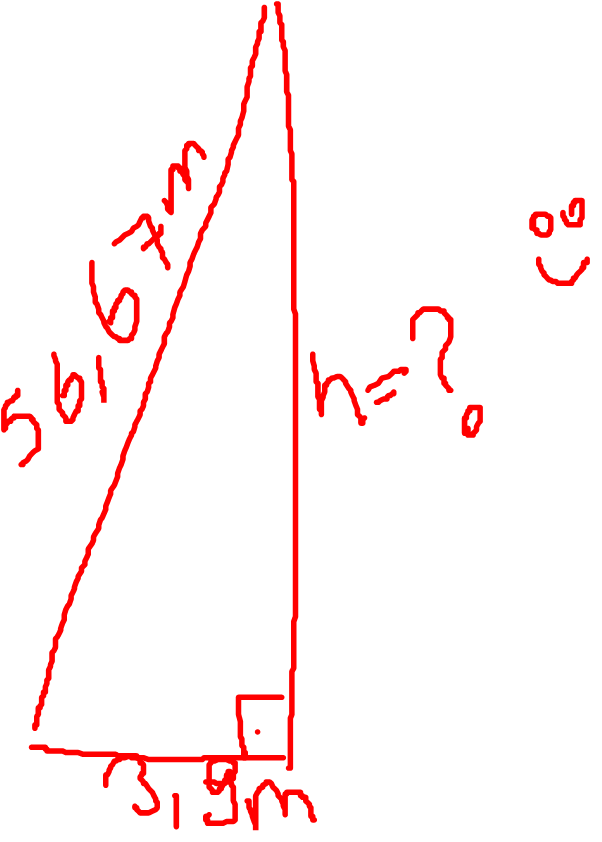 56,67m
h=?
3,9m